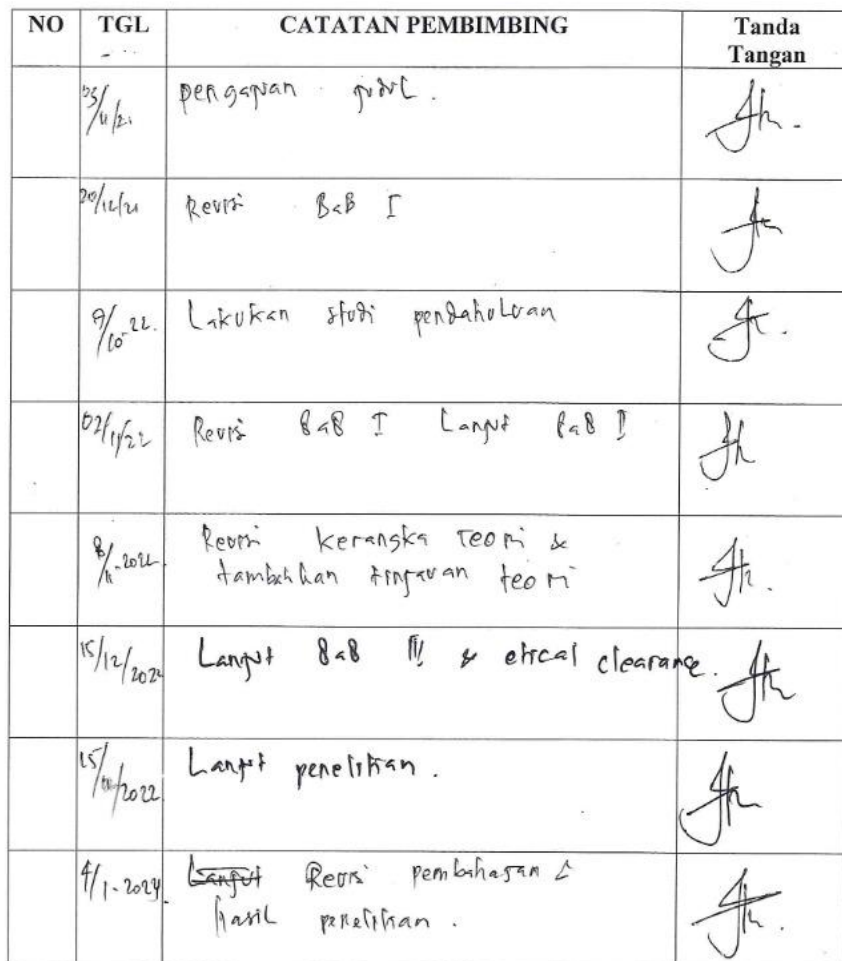 NO TGL CATATAN PEMBIMBING Tanda
Tangan
pengajuan judul.
20/12/21 Revisi BaB I
9/10-22. Lakukan studi pendahuluan
02/11/22 Revisi BaB I Lanjut BaB II
8/11-2022. Revisi kerangka teori &
tambahkan tinjauan teori
15/12/2022 Lanjut BaB III & etical clearance.
Lanjut penelitian.
4/1-2024. Lanjut Revisi pembahasan &
hasil penelitian.